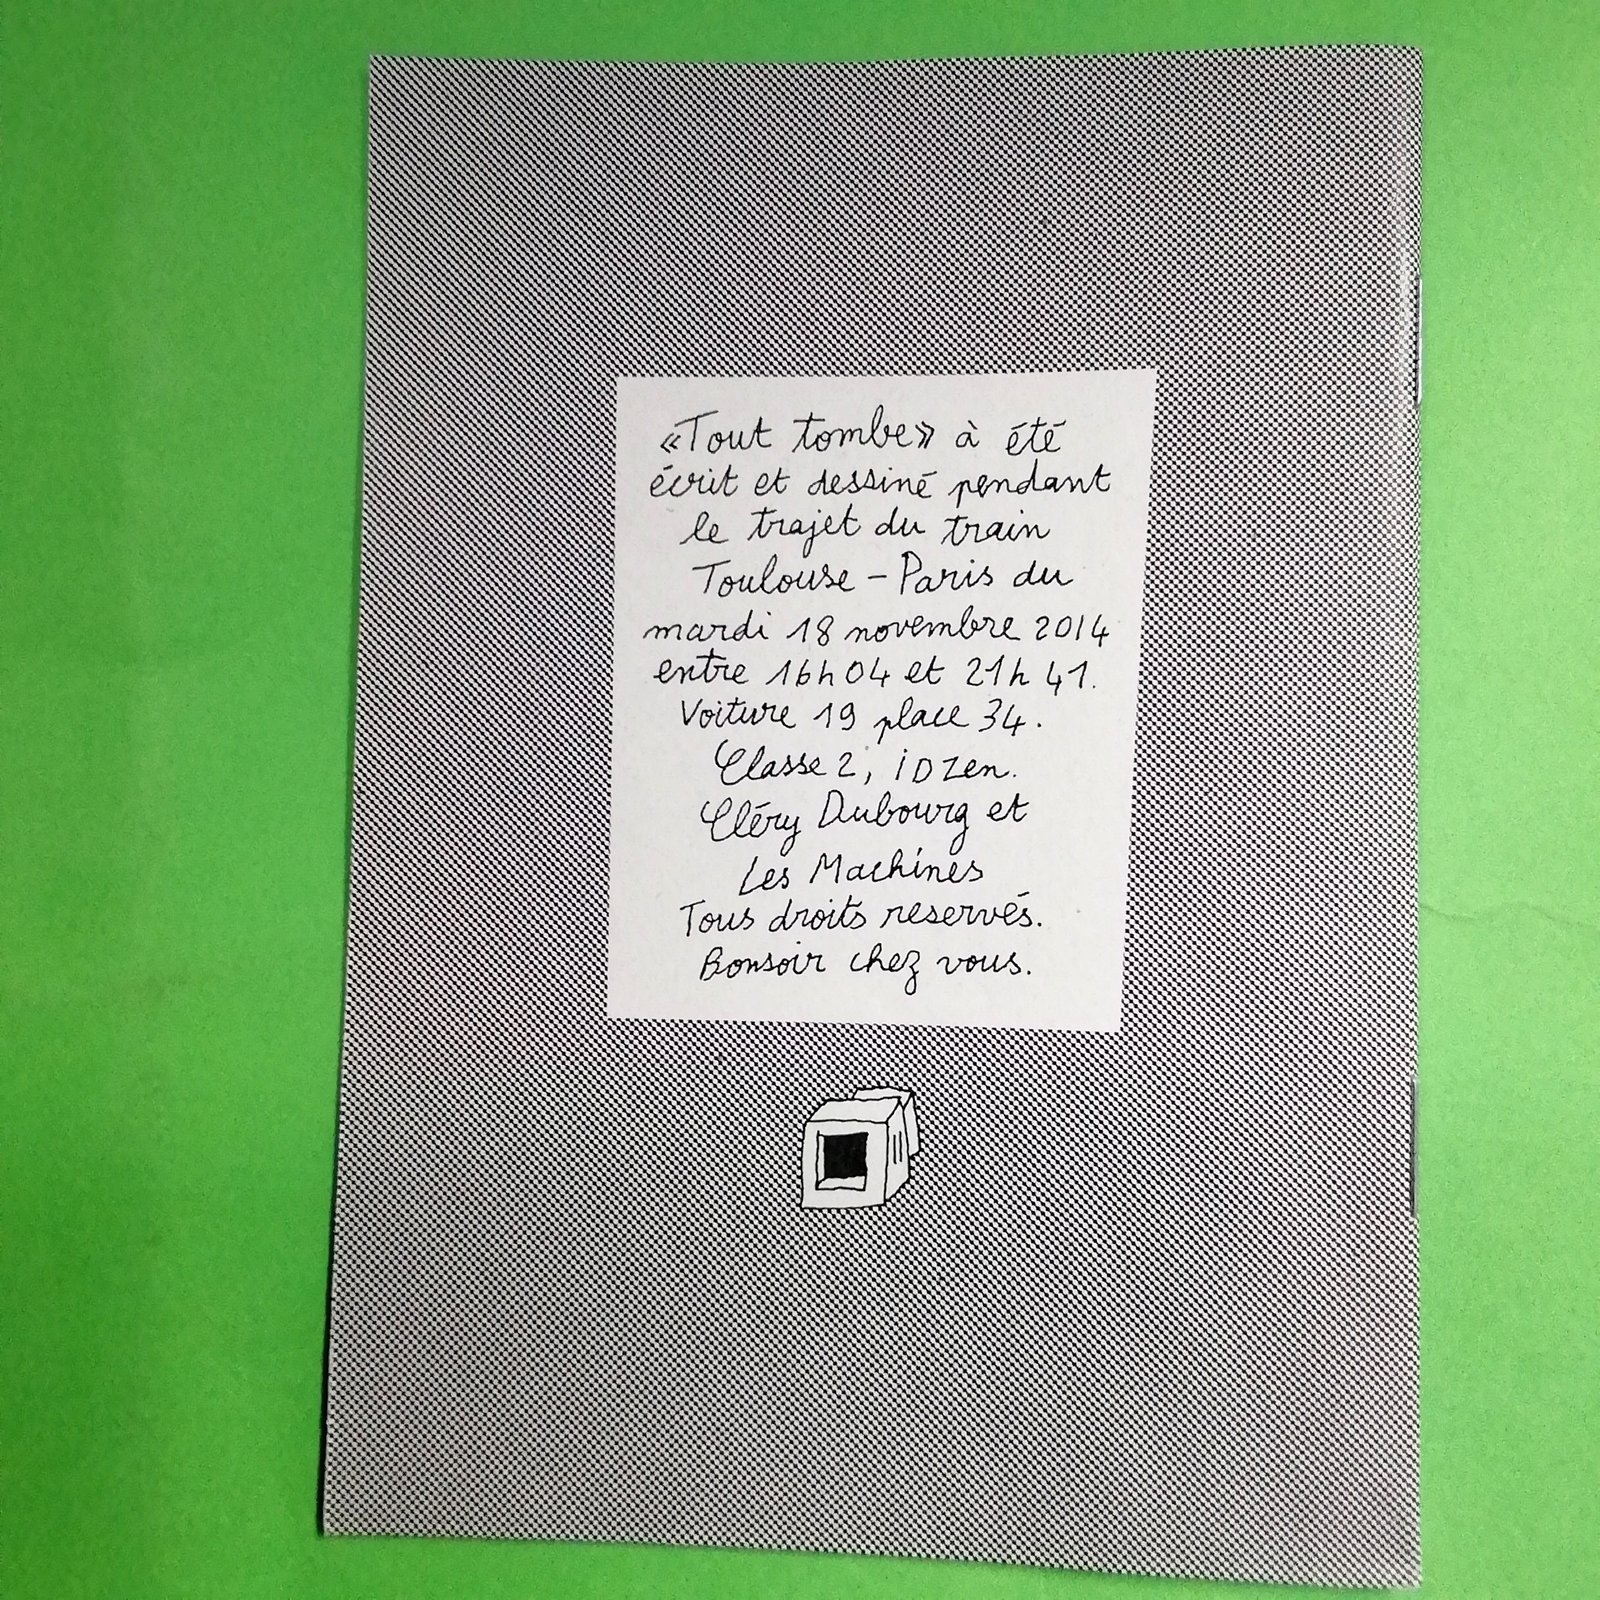 «Tout tombe» à été
écrit et dessiné pendant
le trajet du train
Toulouse – Paris du
mardi 18 novembre 2014
entre 16h04 et 21h41.
Voiture 19 place 34.
Classe 2, iDZen.
Cléry Dubourg et
Les Machines
Tous droits reservés.
Bonsoir chez vous.